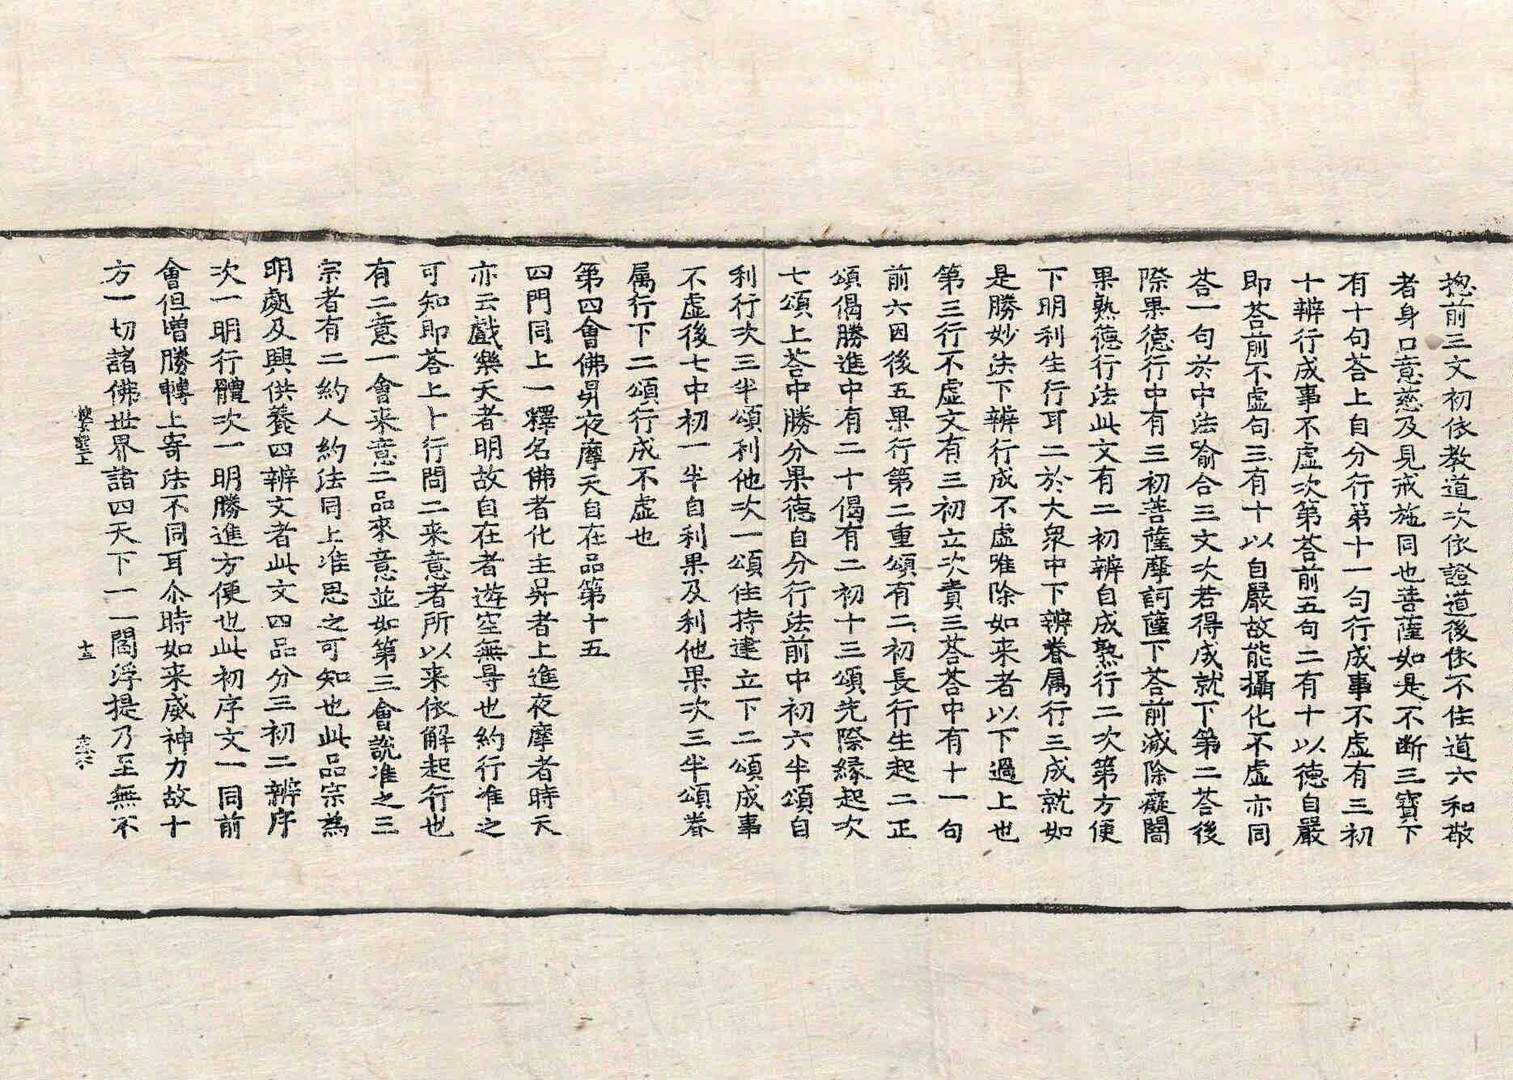 揔前三文初依教道次依證道後依不住道六和敬
者身口意慈及見戒施同也菩薩如是不斷三寶下
有十句荅上自分行第十一句行成事不虛有三初
十辨行成事不虛次第荅前五句二有十以徳自嚴
即荅前不虛句三有十以自嚴故能攝化不虛亦同
荅一句於中法喻合三文次若得成就下第二荅後
際果德行中有三初菩薩摩訶薩下荅前滅除癡闇
果熟德行法此文有二初辨自成熟行二次第方便
下明利生行耳二於大衆中下辨眷属行三成就如
是勝妙法下辨行成不虛唯除如来者以下過上也
第三行不虛文有三初立次責三荅荅中有十一句
前六因後五果行第二重頌有二初長行生起二正
頌偈勝進中有二十偈有二初十三頌先際縁起次
七頌上荅中勝分果德自分行法前中初六半頌自
利行次三半頌利他次一頌住持建立下二頌成事
不虛後七中初一半自利果及利他果次三半頌眷
属行下二頌行成不虛也
第四會佛昇夜摩天自在品第十五
四門同上一釋名佛者化主昇者上進夜摩者時天
亦云戲樂天者明故自在者遊空無㝵也約行准之
可知即荅上十行問二来意者所以来依解起行也
有二意一會来意二品來意並如第三會説准之三
宗者有二約人約法同上准思之可知也此品宗為
明處及興供養四辨文者此文四品分三初二辨序
次一明行體次一明勝進方便也此初序文一同前
會但増勝轉上寄法不同耳尒時如来威神力故十
方一切諸佛世界諸四天下一一閻浮提乃至無不
十五